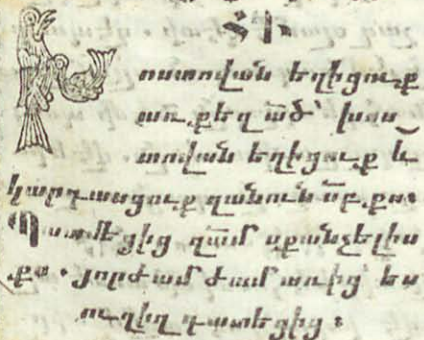 ՀԴ
Խոստովան եղիցուք
առ քեզ ած՝ խոս
տովան եղիցուք և
կարդասցուք զանուն սբ քո։
Պատմեցից զամ սքանչելիս
քո. յորժամ ժամ առից՝ ես
ուղիղ դատեցից։